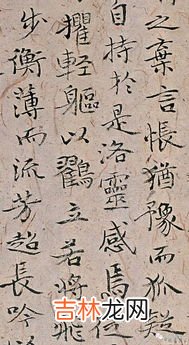 之棄言悵猶豫而狐疑
自持於是洛靈感焉徙
擢輕軀以鶴立若將飛
步衡薄而流芳超長吟
吉林龙网